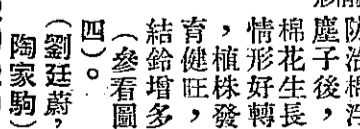 防治棉浮
塵子後，
棉花生長，
情形好轉
，植株發
育健旺，
結鈴增多，
（參看圖
四）。
（劉廷蔚，
陶家駒）